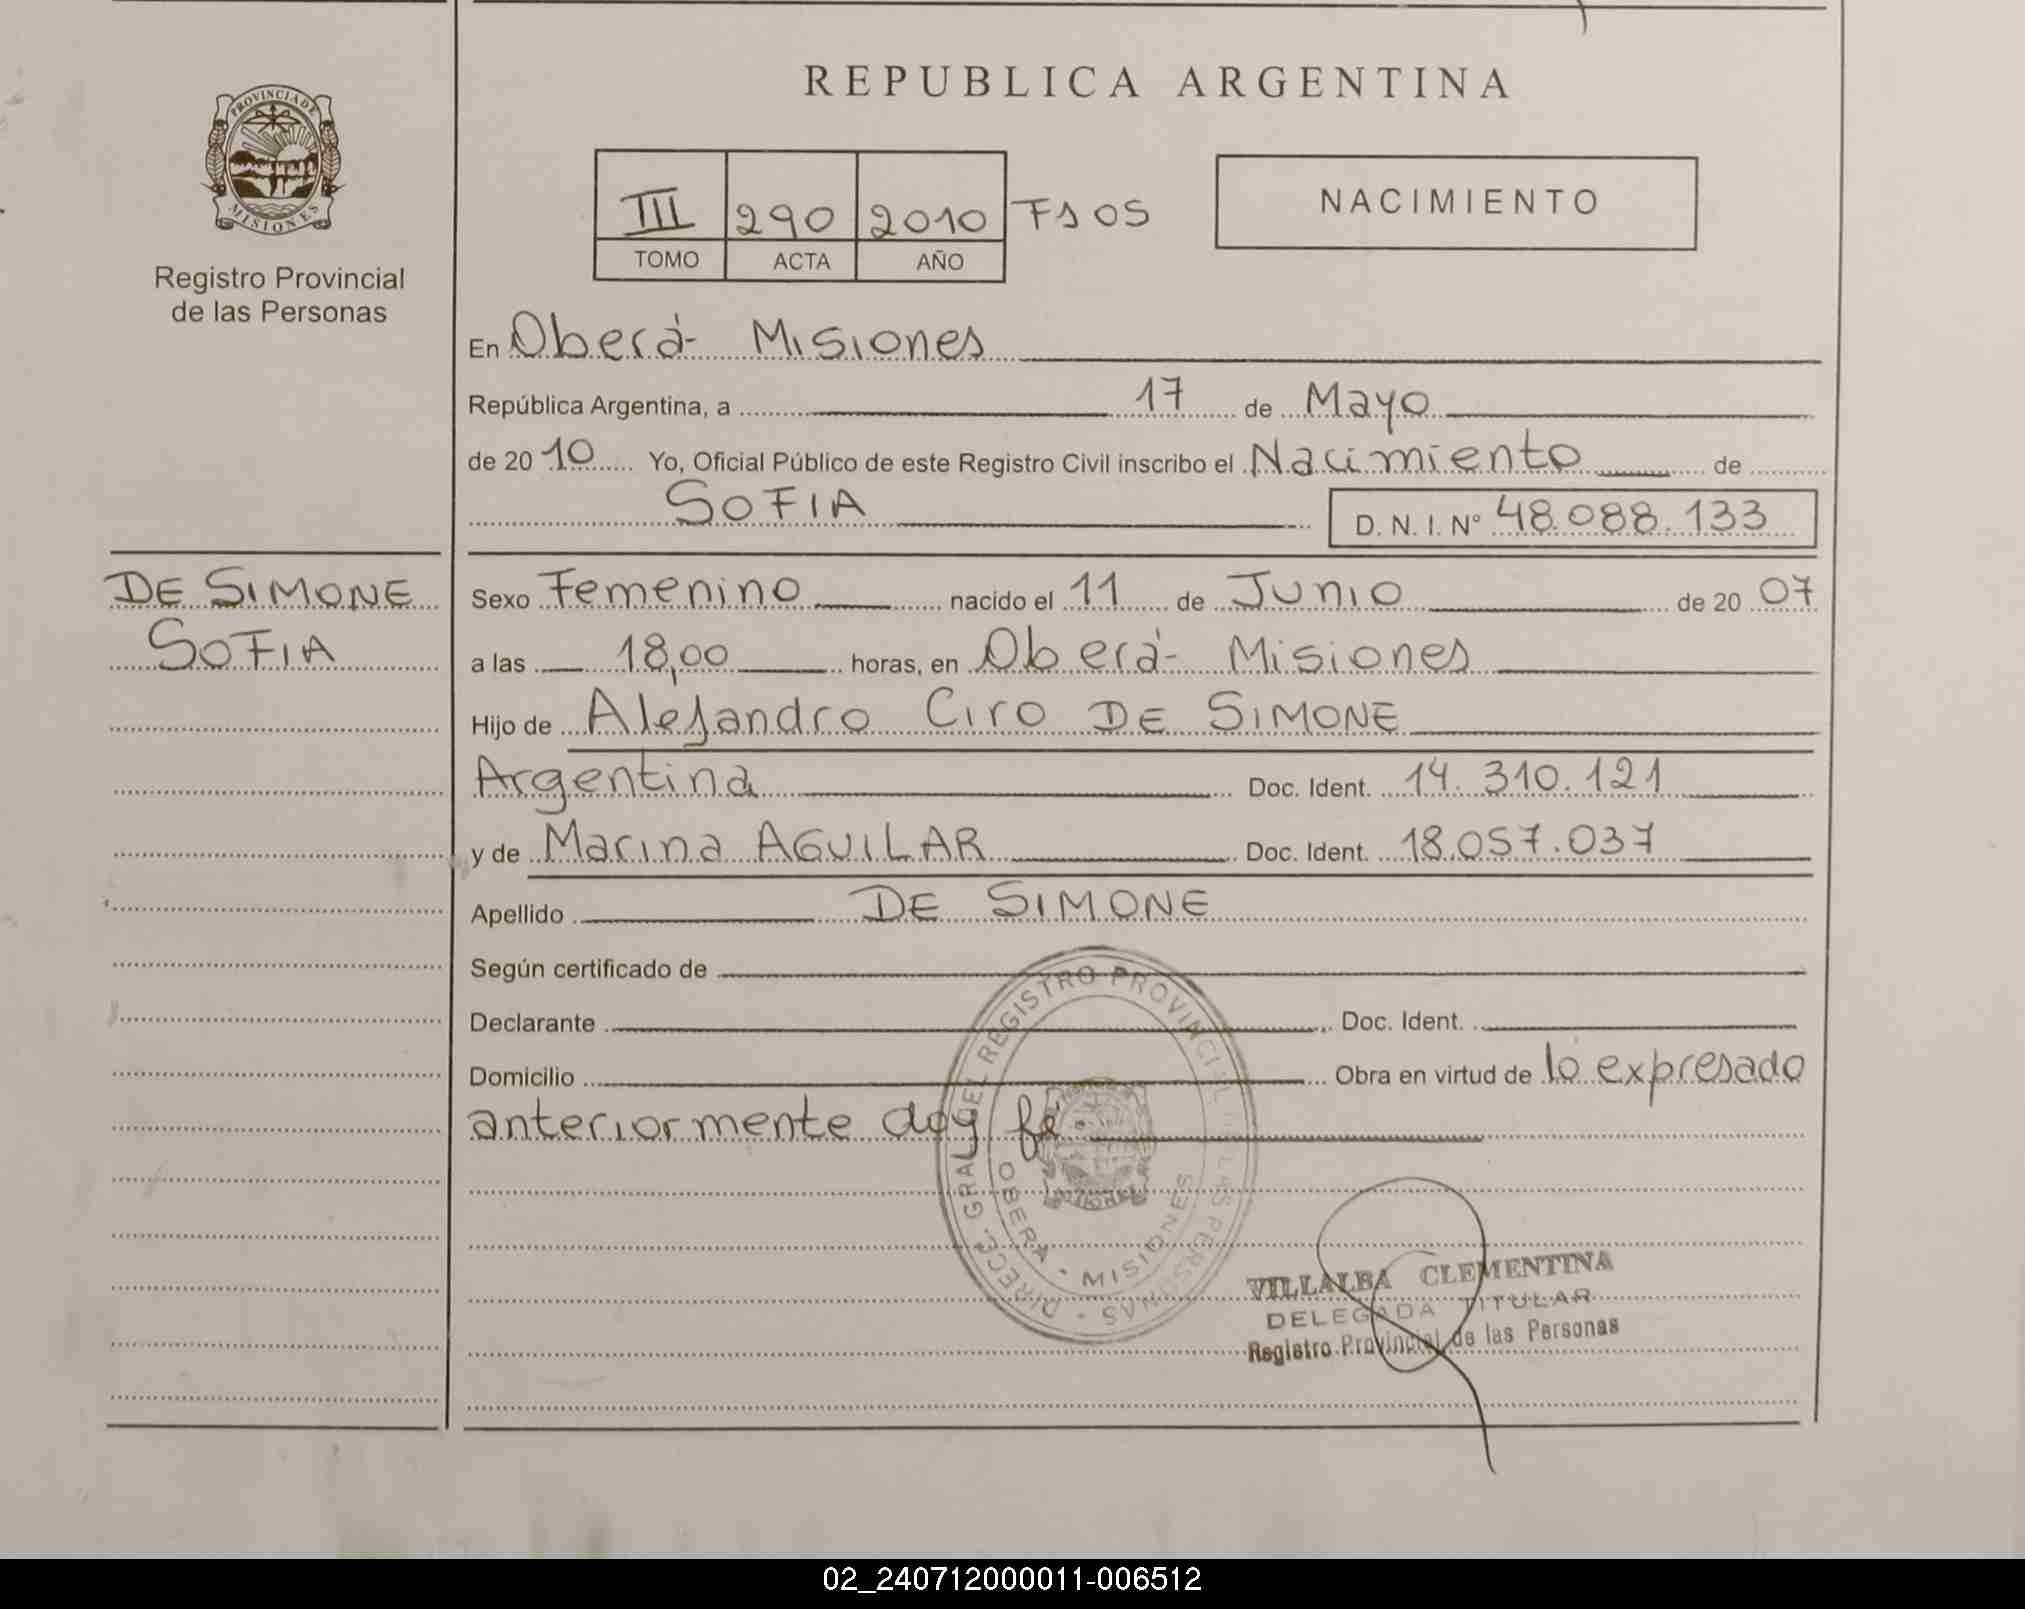 REPUBLICA ARGENTINA
PROVINCIA DE
MISIONES
Registro Provincial
de las Personas
III 290 2010 F105
TOMO ACTA AÑO
NACIMIENTO
En Oberá- Misiones
República Argentina, a 17 de Mayo
de 2010 Yo, Oficial Público de este Registro Civil inscribo el Nacimiento de
SOFIA D.N.I. Nº 48.088.133
DE SIMONE
SOFIA
Sexo Femenino nacido el 11 de Junio de 2007
a las 18,00 horas, en Oberá- Misiones
Hijo de Alejandro Ciro DE SIMONE
Argentina Doc. Ident. 14.310.121
y de Marina AGUILAR Doc. Ident. 18.057.037
Apellido DE SIMONE
Según certificado de
Declarante Doc. Ident.
Domicilio Obra en virtud de lo expresado
anteriormente doy fé
DIRECC. GRAL. DEL REGISTRO PROVINCIAL DE LAS PERSONAS
OBERA - MISIONES
VILLALBA CLEMENTINA
DELEGADA TITULAR
Registro Provincial de las Personas
02_240712000011-006512